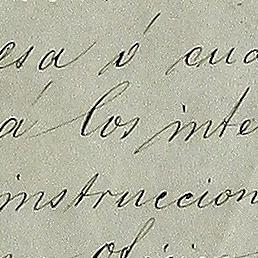 esa ó cua
á los inte
instruccion